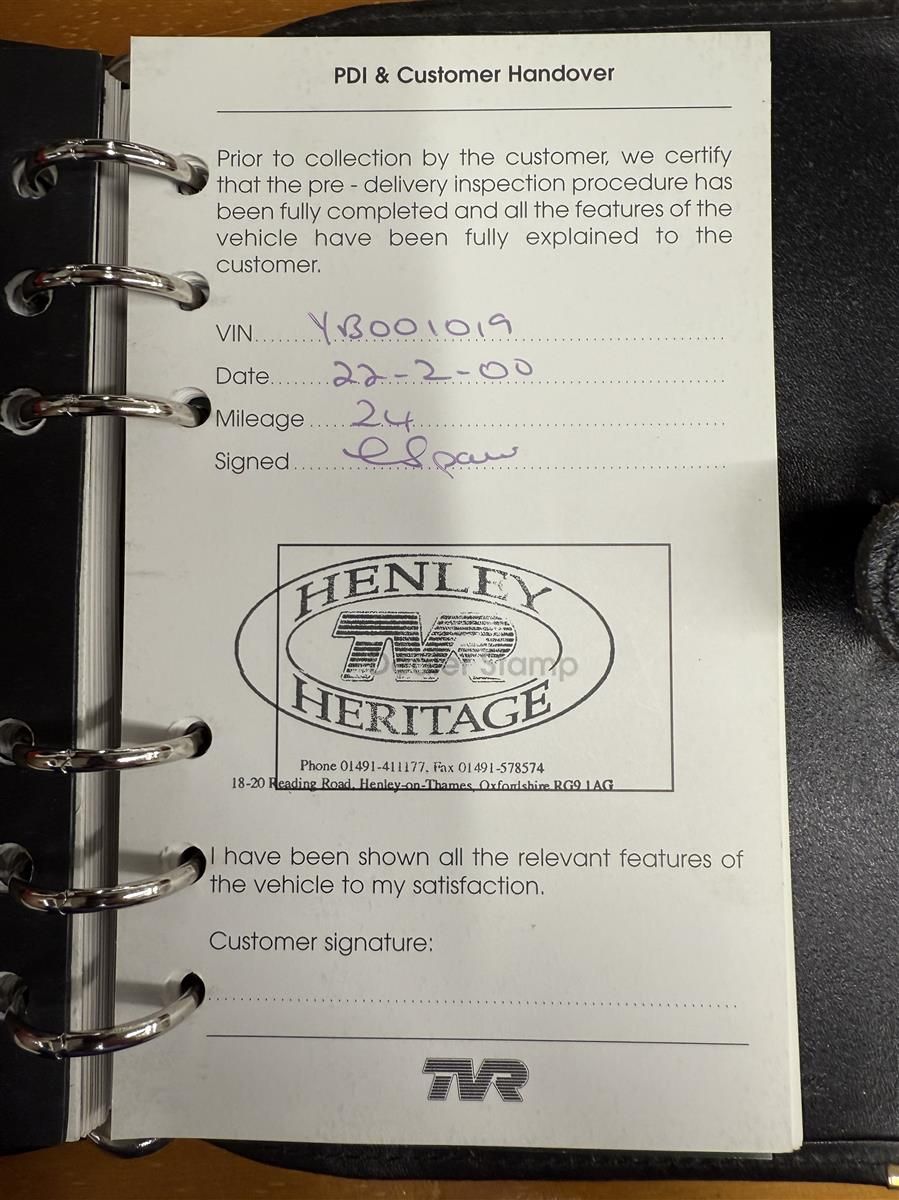 PDI & Customer Handover
Prior to collection by the customer, we certify
that the pre - delivery inspection procedure has
been fully completed and all the features of the
vehicle have been fully explained to the
customer.
VIN YB001019
Date 22-2-00
Mileage 24
Signed
HENLEY
TVR
Dealer Stamp
HERITAGE
Phone 01491-411177, Fax 01491-578574
18-20 Reading Road, Henley-on-Thames, Oxfordshire RG9 1AG
I have been shown all the relevant features of
the vehicle to my satisfaction.
Customer signature:
TVR